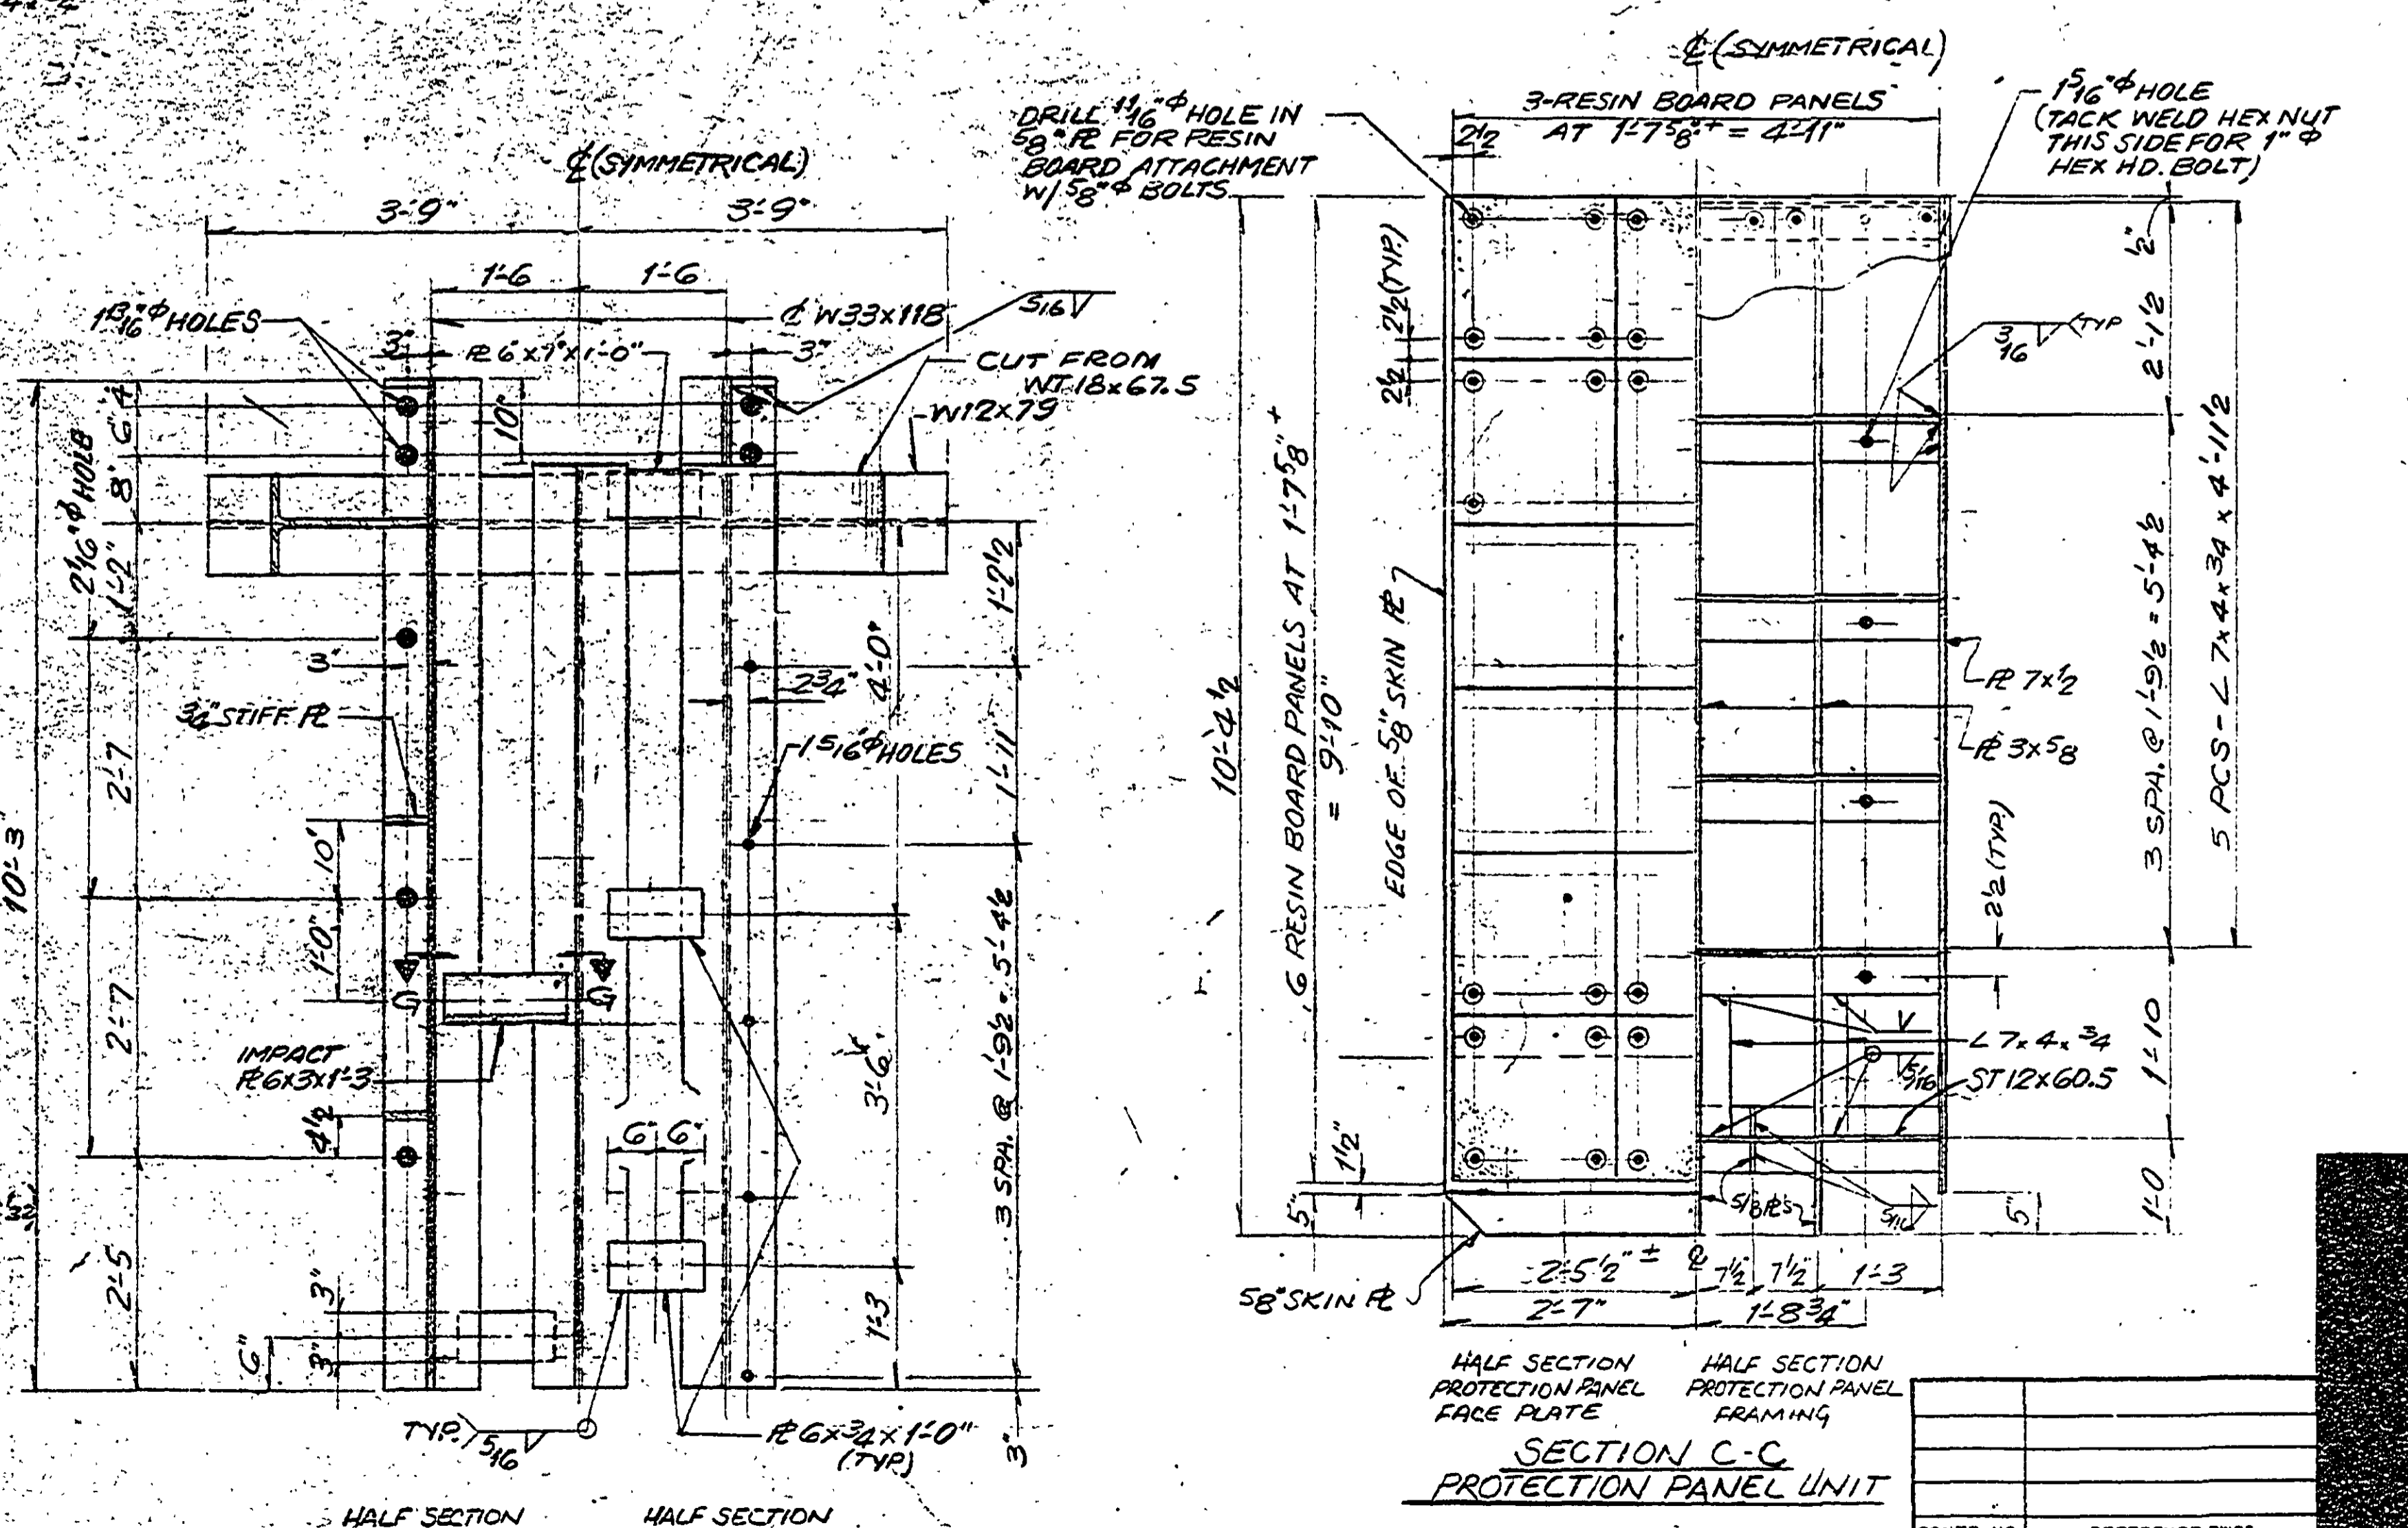 ℄ (SYMMETRICAL)
3'-9"
3'-9"
1'-6
1'-6
1 13/16"Φ HOLES
3"
℄ W33x118
5/16
℞ 6"x7"x1'-0"
3"
CUT FROM
WT 18x67.5
W12x79
10"
4
6"
8"
2 1/16"Φ HOLE
1'-2"
1'-2 1/2
3"
2 3/4"
4'-0"
3/4" STIFF. ℞
1 5/16"Φ HOLES
2'-7
1'-11"
10'-3
10"
1'-0"
G
G
2'-7
IMPACT
℞ 6x3x1'-3
3'-6"
3 SPA. @ 1'-9 1/2 = 5'-4 1/2
4 1/2
6"
6"
2'-5
3"
3"
6"
1'-3
3"
TYP.
5/16
℞ 6x3/4x1'-0"
(TYP.)
HALF SECTION
HALF SECTION
℄ (SYMMETRICAL)
DRILL 11/16"Φ HOLE IN
5/8" ℞ FOR RESIN
BOARD ATTACHMENT
W/ 5/8"Φ BOLTS
3-RESIN BOARD PANELS
AT 1'-7 5/8"+ = 4'-11"
2 1/2
1 5/16"Φ HOLE
(TACK WELD HEX NUT
THIS SIDE FOR 1"Φ
HEX HD. BOLT)
2 1/2 (TYP.)
2 1/2
1/2"
2'-1 1/2
3/16
TYP
10'-4 1/2
6 RESIN BOARD PANELS AT 1'-7 5/8"+
= 9'-10"
EDGE OF 5/8" SKIN ℞
℞ 7x1/2
℞ 3x5/8
3 SPA. @ 1'-9 1/2 = 5'-4 1/2
5 PCS - L 7x4x3/4 x 4'-11 1/2
2 1/2 (TYP.)
L 7x4x3/4
5/16
ST 12x60.5
1'-10
1 1/2"
5"
5/8 ℞'S
5/16
5"
1'-0
5/8" SKIN ℞
2'-5 1/2" ±
℄
7 1/2
7 1/2
1'-3
2'-7"
1'-8 3/4"
HALF SECTION
PROTECTION PANEL
FACE PLATE
HALF SECTION
PROTECTION PANEL
FRAMING
SECTION C-C
PROTECTION PANEL UNIT